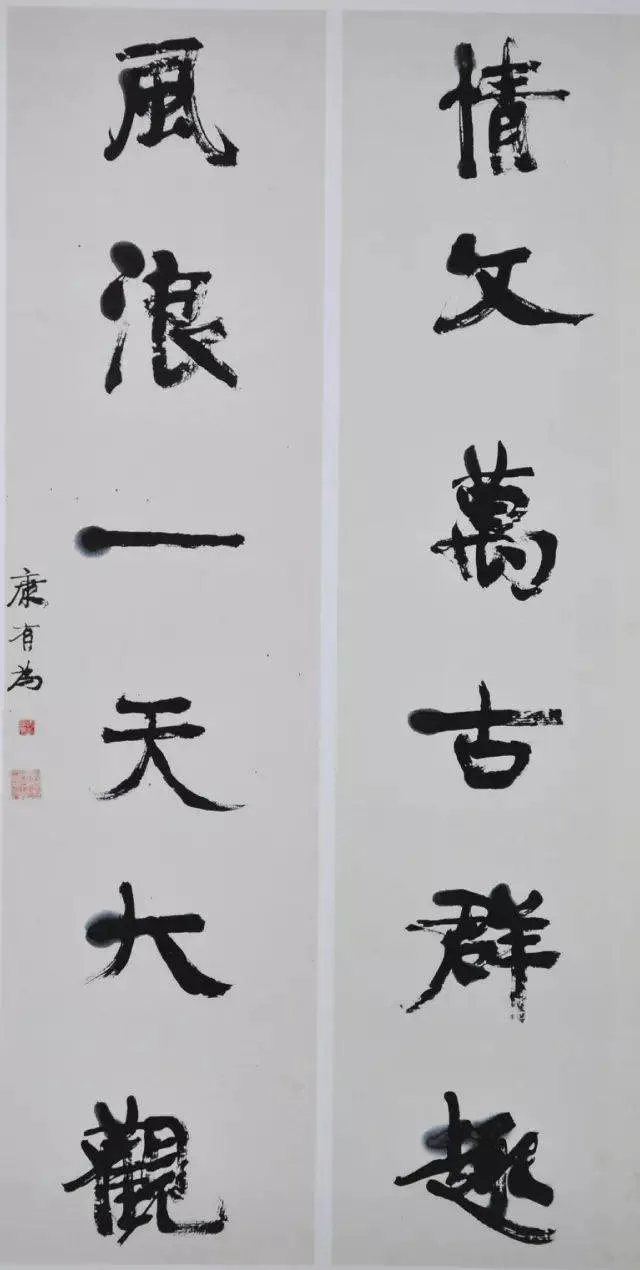 情文萬古群趣
風浪一天大觀
康有為